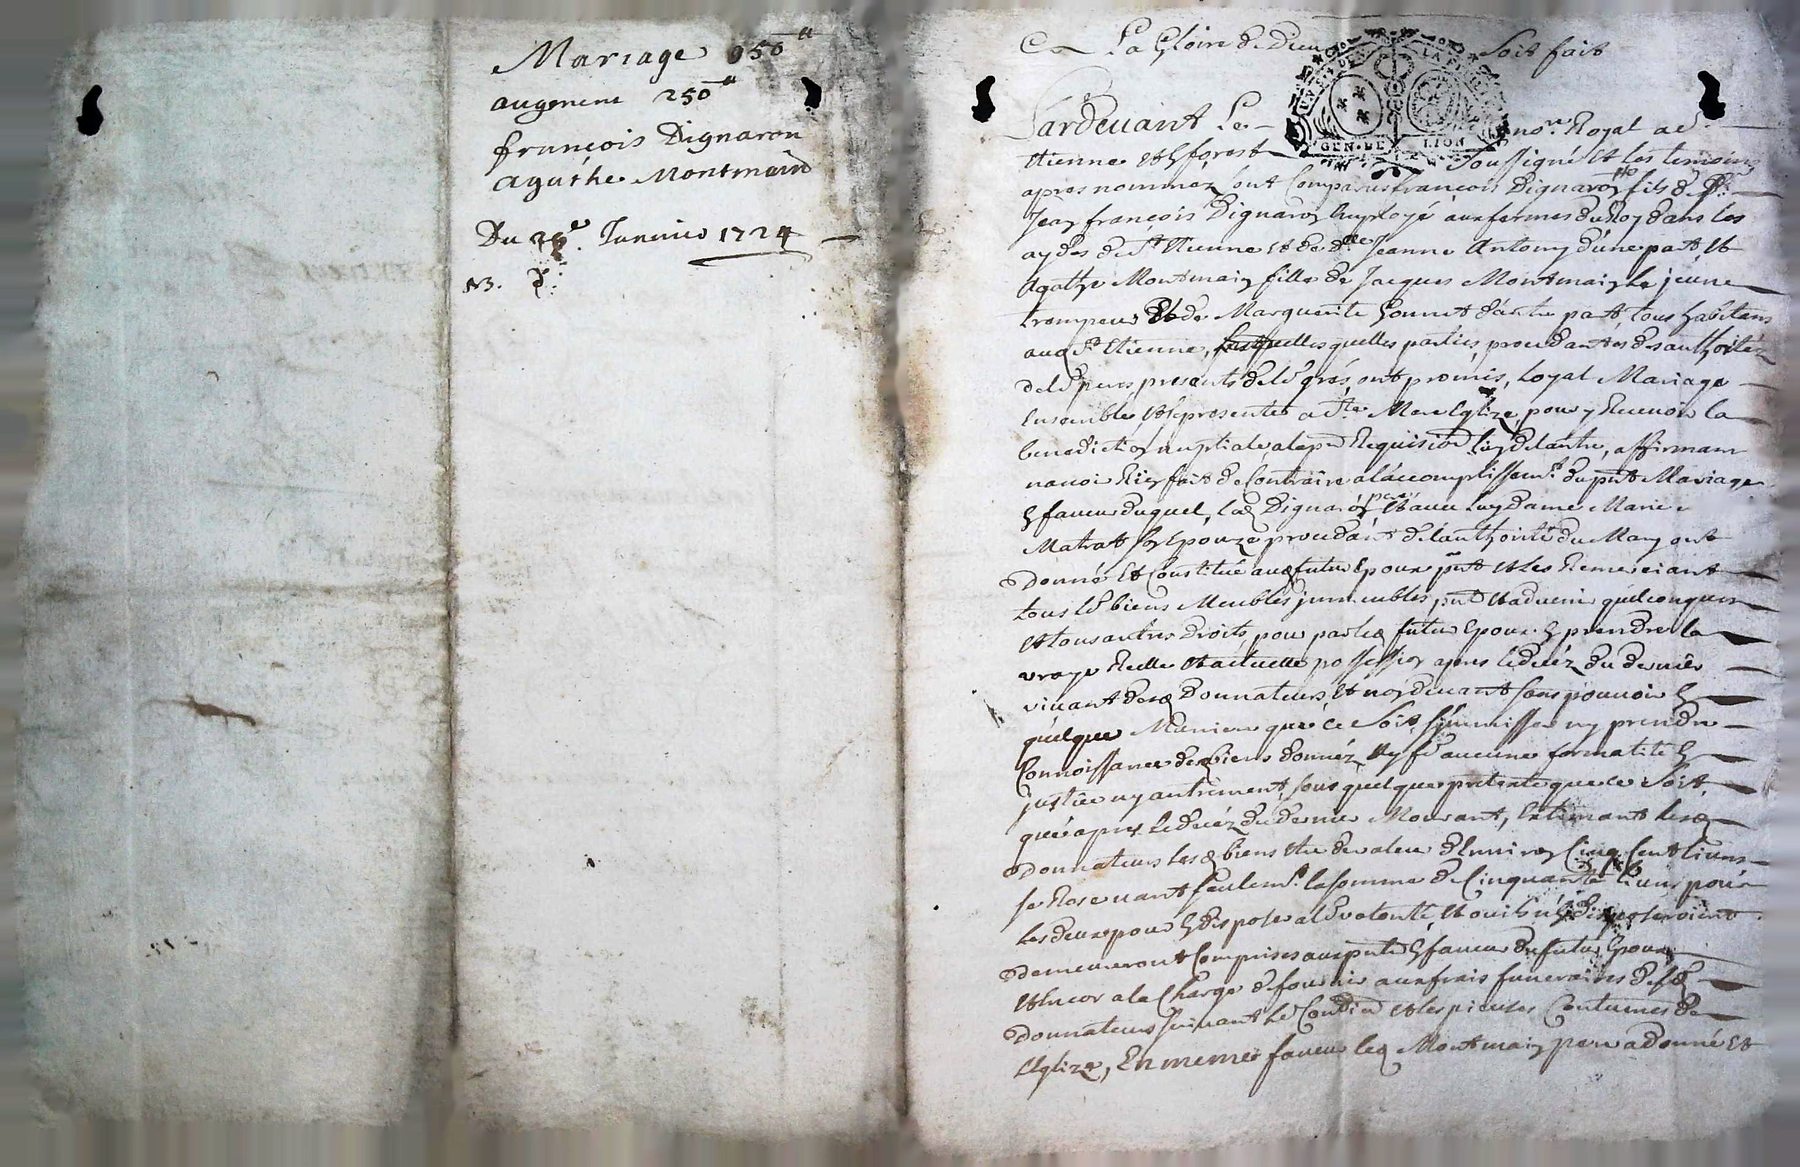 Mariage 950ᵗᵗ
augment 250ᵗᵗ
françois Dignaron
agathe Montmain
Du 28e Janvier 1724
N3. d.
A La Gloire de Dieu Soit fait
GEN. DE LION
Pardevant Le nore. Royal a St.
Etienne et forest soussigné et les temoins
apres nommez sont Comparus françois Dignaron fils de Sr.
Jean françois Dignaron Employé aux fermes du Roy dans les
aydes de St Etienne et de dlle Jeanne Antony d'une part, et
agathe Montmain fille de Jacques Montmain Le jeune
trompeur Et de Marguerite Gonnet d'autre part, tous habitans
aud St Etienne, lesquelles parties, procedant des authorités
de ld peres presents de ld grés, ont promis, Loyal Mariage
Ensemble et se presenter a Ste Mere Eglize, pour y Recevoir la
benediction nuptiale, a la pre Requisition l'un de l'autre, affirmant
n'avoir Rien fait de Contraire a l'accomplissemt. du pnt Mariage
En faveur duquel, led Dignaron pere Et avec luy dame Marie
Matrat son Epouze procedant de l'authorité du Mary ont
donné Et Constitué aud futur Epoux pnt et les Remerciant
tous ld biens Meubles immeubles, pnts et advenir quelconques
et tous autres droits, pour par led futur Epoux En prendre la
vraye Reelle et actuelle possession apres le decéz du dernier
vivant desd donnateurs, et non devant sans pouvoir En
quelque Maniere que ce Soit, s'immisser ny prendre
Connoissance desd biens donnéz ny fe aucune formalité En
justice ny autrement, sous quelque pretexte que ce Soit,
que apres le decéz du dernier Mourant, Estimant lesd
donnateurs lesd biens Etre de valeur d'Environ Cinq Cent livres
se Reservant seulemt. la somme de Cinquante livres pour
les deux pour En disposer a ld volonté, Et ou ils n'En disposeroient
demeureront Comprises au pnt En faveur du futur Epoux
Et Encor a la Charge de fournir aux frais funeraires desd
donnateurs suivant ld Condion et les pieuses Coutumes de
L'Eglize, En meme faveur led Montmain pere a donné Et